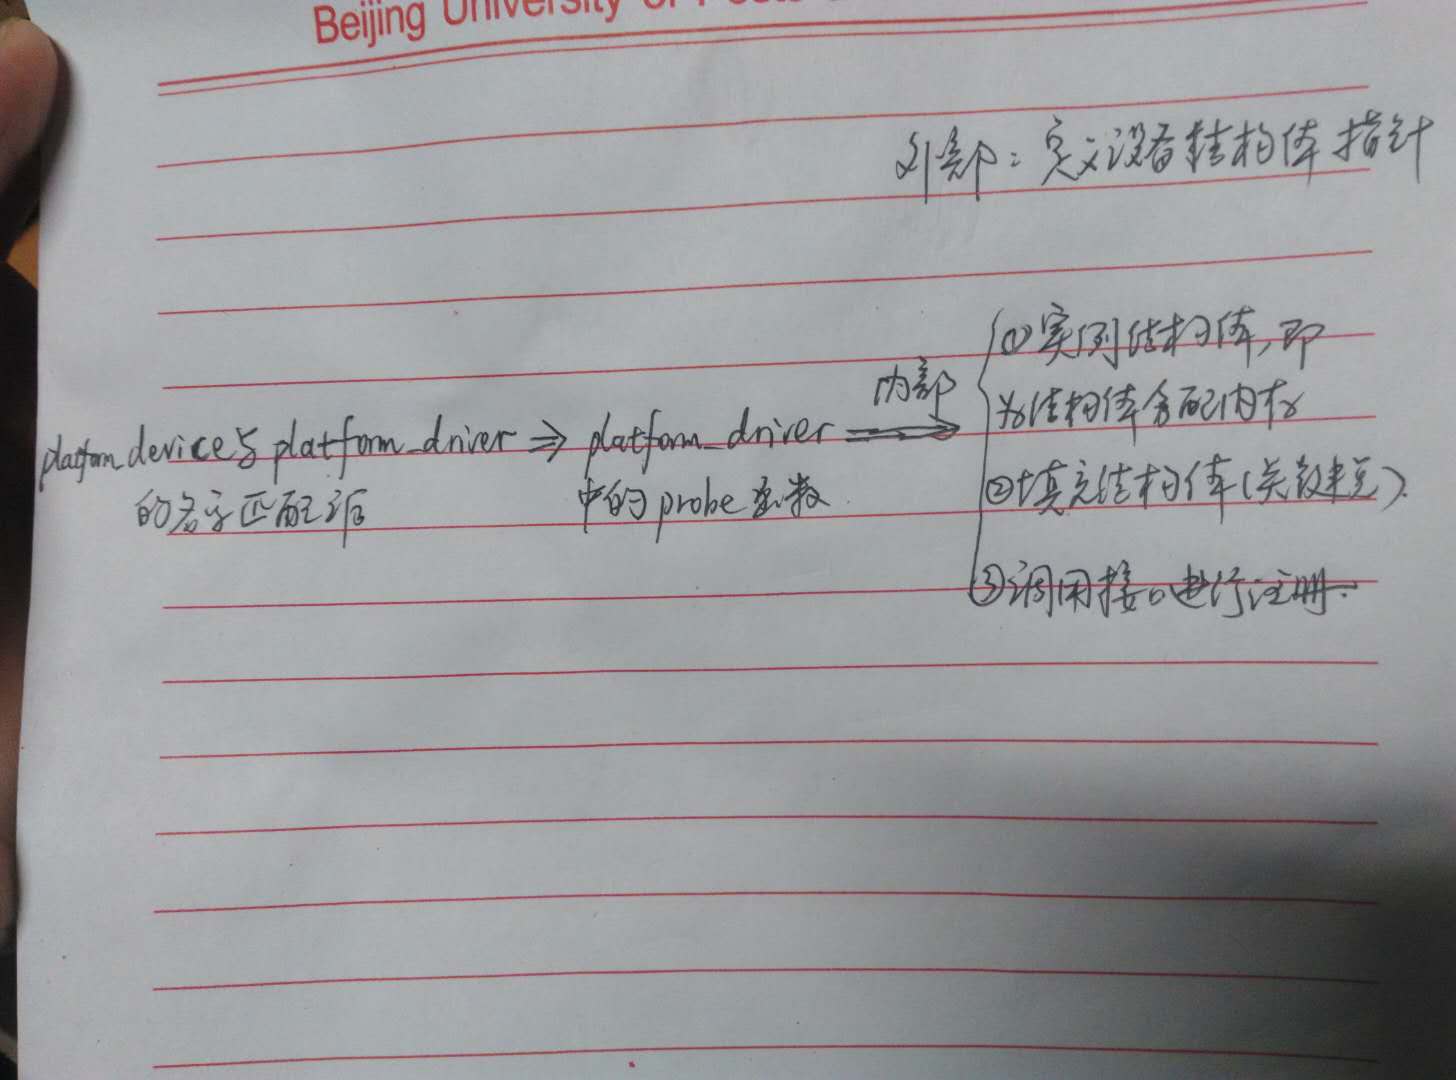 Beijing University of Posts
外部：定义设备结构体指针
①实例结构体，即
为结构体分配内存
内部
platform_device与platform_driver ⇒ platform_driver
的名字匹配后
中的probe函数
②填充结构体(关键)
③调用接口进行注册.